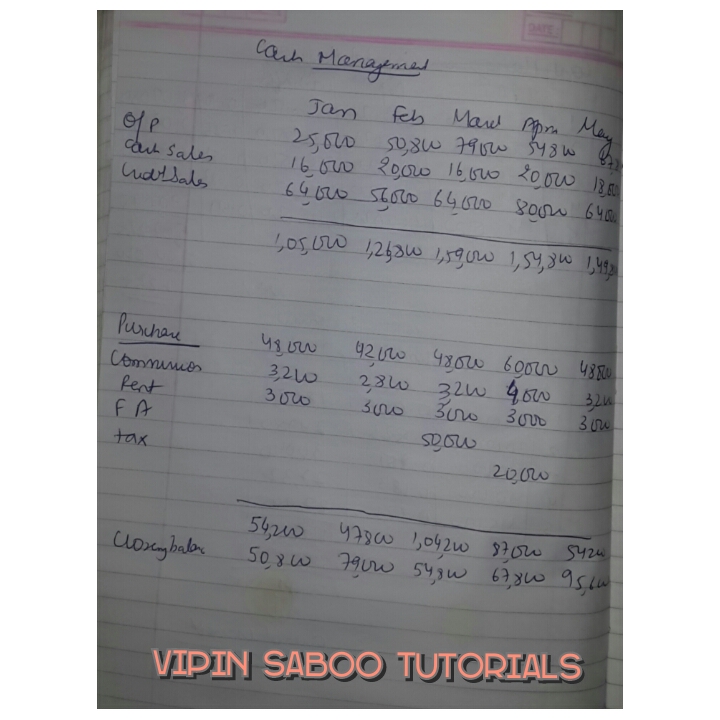 DATE
Cash Management
Jan Feb March Apri May
O/P 25,000 50,800 79000 54800
Cash Sales 16,000 20,000 16,000 20,000
Credit Sales 64,000 56,000 64,000 80,000
1,05,000 1,26,800 1,59,000 1,54,800
Purchase 48,000 42,000 48,000 60,000 48000
Commission 3,200 2,800 3,200 4,000 3,200
Rent 3000 3000 3000 3000 3000
F A 50,000
tax 20,000
54,200 47800 1,04,200 87,000 54200
Closing balance 50,800 79,000 54,800 67,800 95,600
VIPIN SABOO TUTORIALS